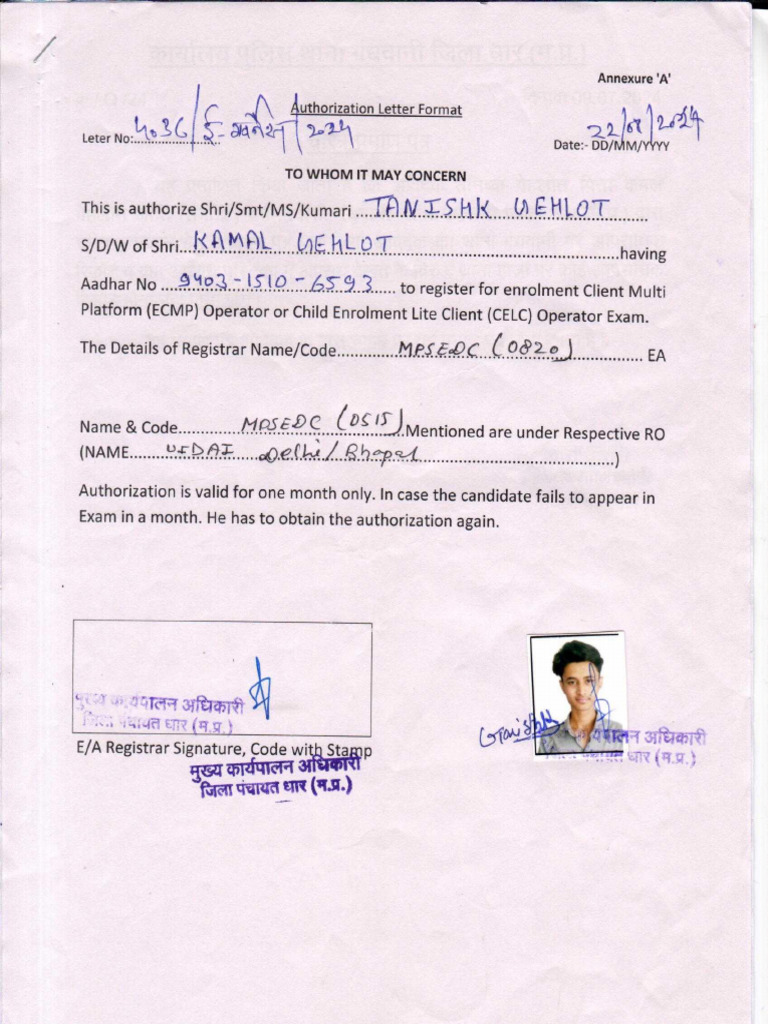 Annexure 'A'
Authorization Letter Format
Leter No:......4036/ई-गवर्नेंस/2024
Date:- DD/MM/YYYY 22/08/2024
TO WHOM IT MAY CONCERN
This is authorize Shri/Smt/MS/Kumari ...TANISHK GEHLOT......
S/D/W of Shri...KAMAL GEHLOT......having
Aadhar No ....9403-1510-6593..... to register for enrolment Client Multi
Platform (ECMP) Operator or Child Enrolment Lite Client (CELC) Operator Exam.
The Details of Registrar Name/Code............MPSEDC (0820)............ EA
Name & Code............MPSEDC (0515)..Mentioned are under Respective RO
(NAME.......UIDAI Delhi/Bhopal..............................)
Authorization is valid for one month only. In case the candidate fails to appear in
Exam in a month. He has to obtain the authorization again.
मुख्य कार्यपालन अधिकारी
जिला पंचायत धार (म.प्र.)
E/A Registrar Signature, Code with Stamp
मुख्य कार्यपालन अधिकारी
जिला पंचायत धार (म.प्र.)
Tanishk
कार्यपालन अधिकारी
पंचायत धार (म.प्र.)